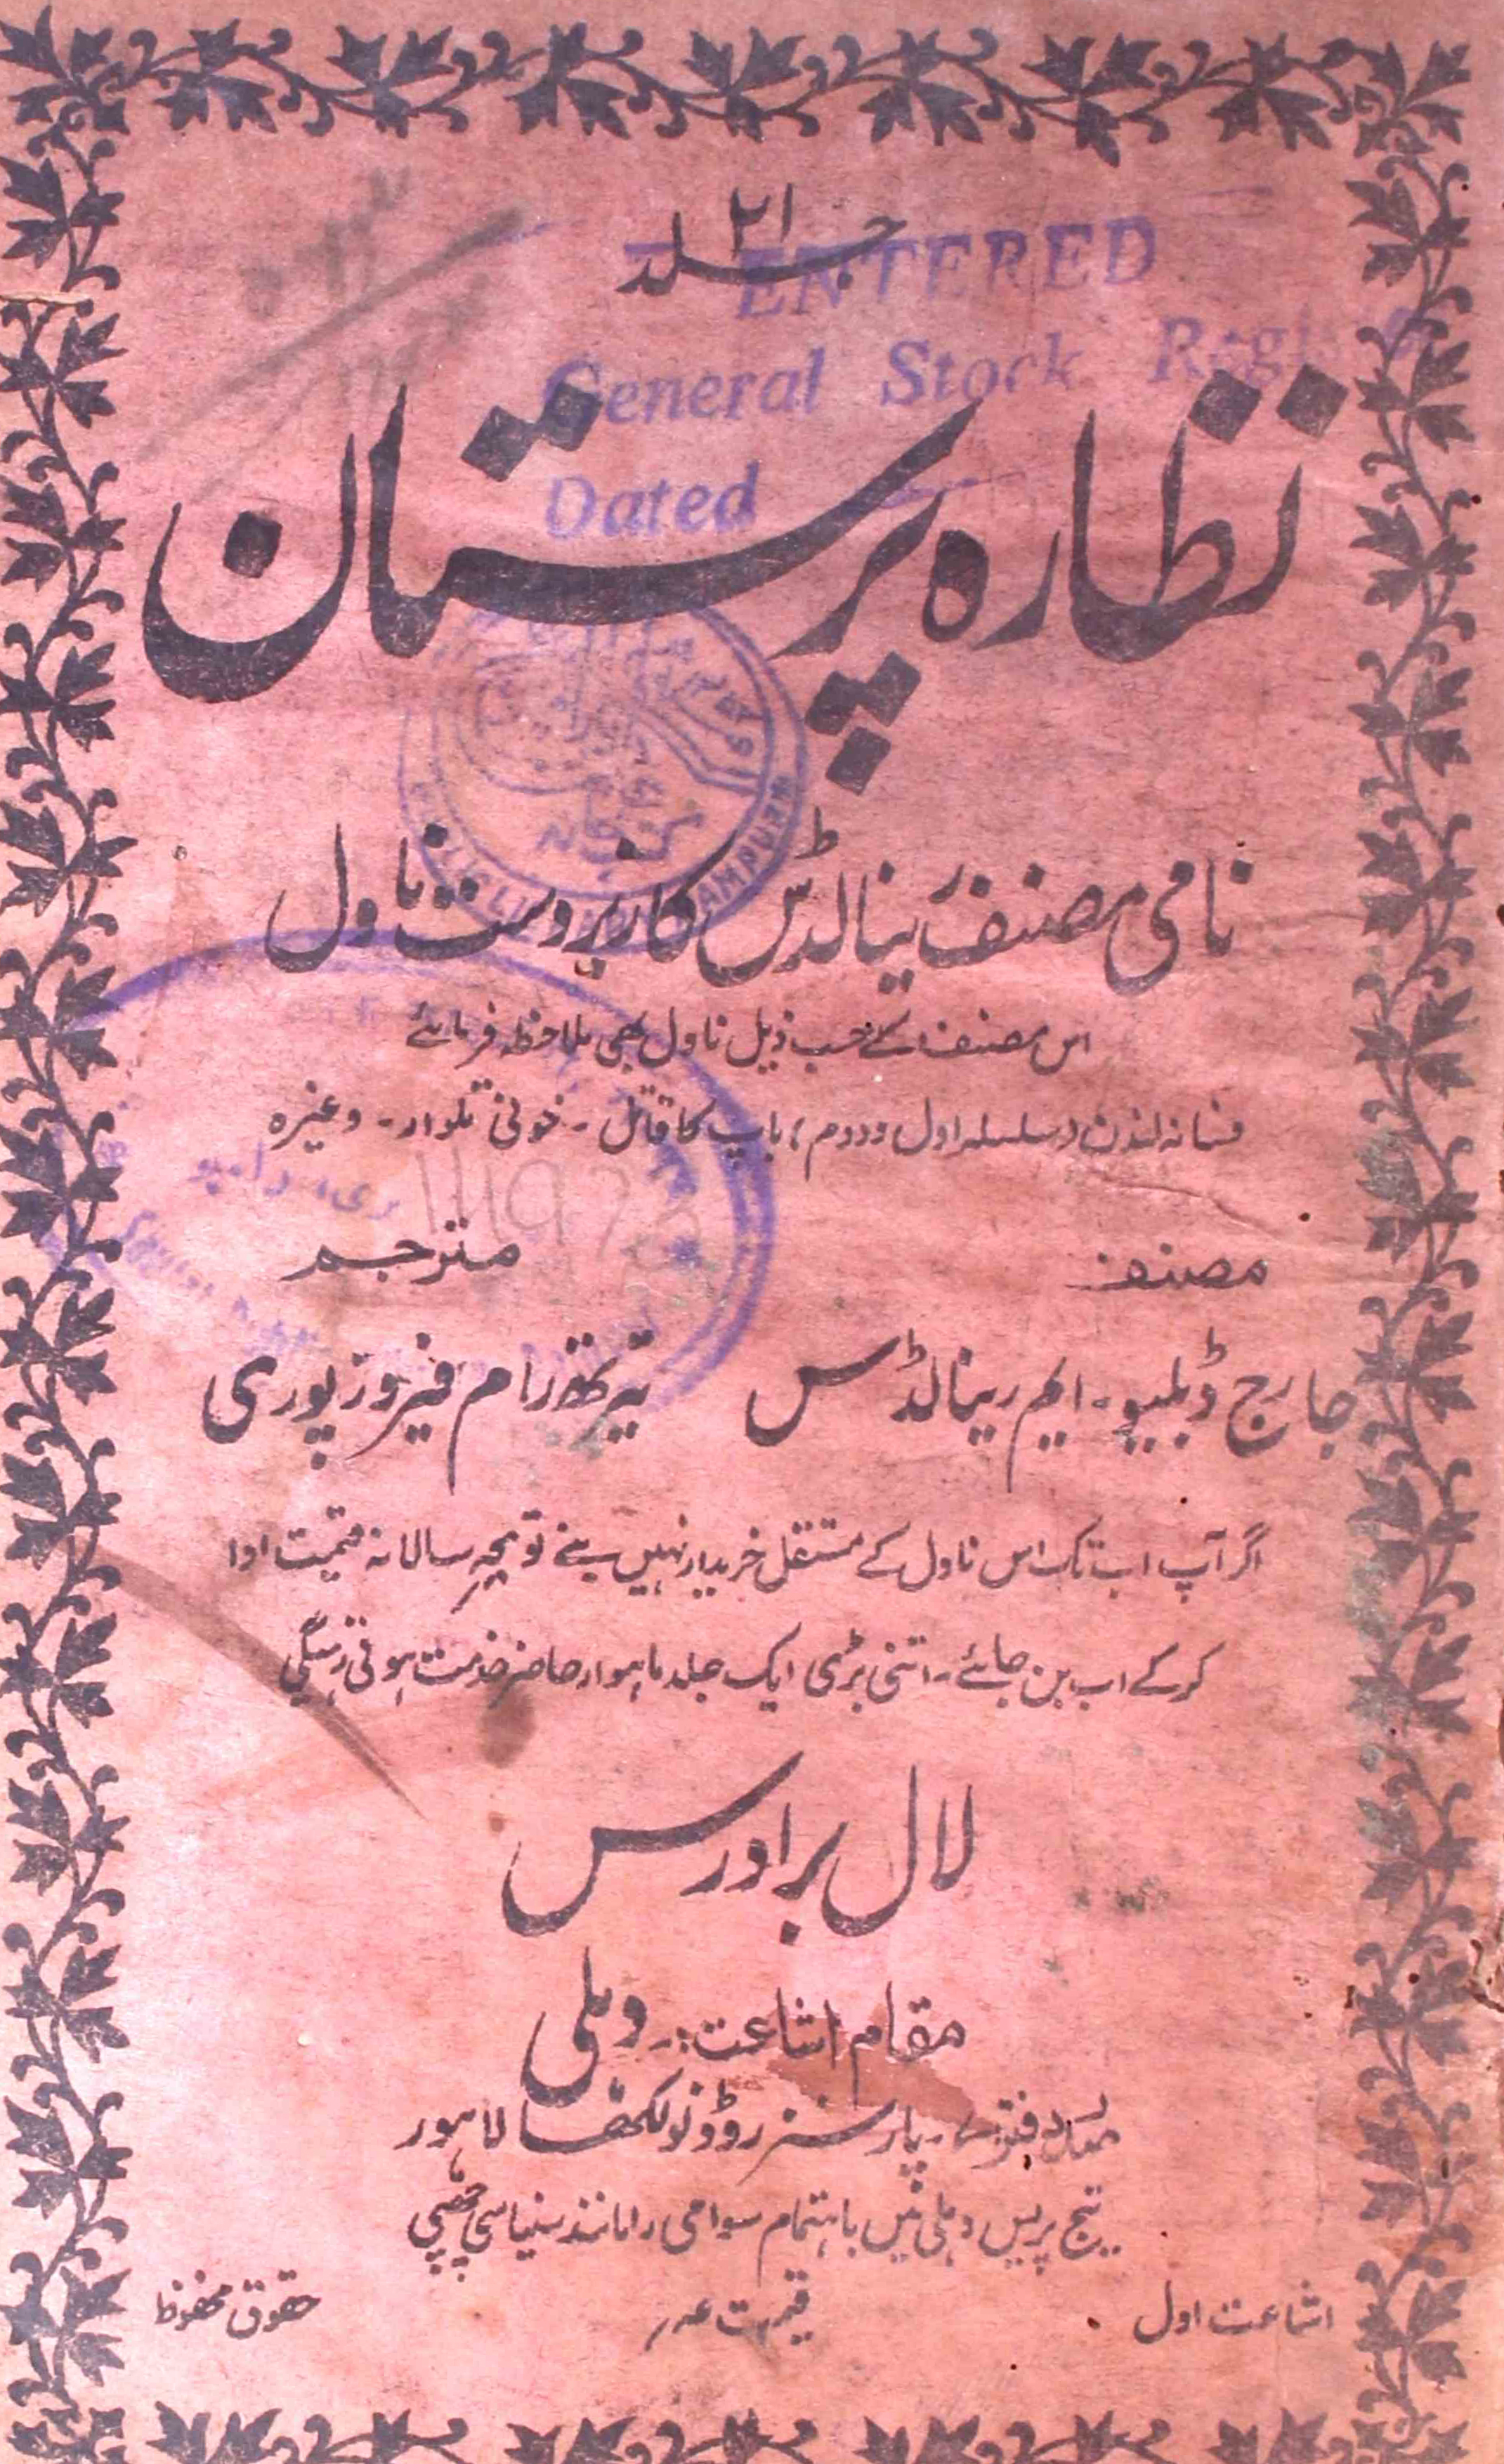 جلد ۲۱
ENTERED
General Stock Register
Dated
نظارہ پرستان
نامی مصنف رینالڈس کا زبردست ناول
اس مصنف کے حسب ذیل ناول بھی ملاحظہ فرمائے
فسانہ لندن (سلسلہ اول و دوم) باپ کا قاتل - خونی تلوار - وغیرہ
مصنف مترجم
جارج ڈبلیو - ایم رینالڈس تیرتھ رام فیروزپوری
اگر آپ اب تک اس ناول کے مستقل خریدار نہیں بنے تو سالانہ قیمت ادا
کر کے اب بن جائے - اتنی بڑی ایک جلد ماہوار حاضر خدمت ہوتی رہیگی
لال برادرس
مقام اشاعت :- دہلی
دفتر - پارسنز روڈ نولکھا لاہور
تیج پریس دہلی میں باہتمام سوامی رامانند سنیاسی چھپی
اشاعت اول قیمت عہ حقوق محفوظ